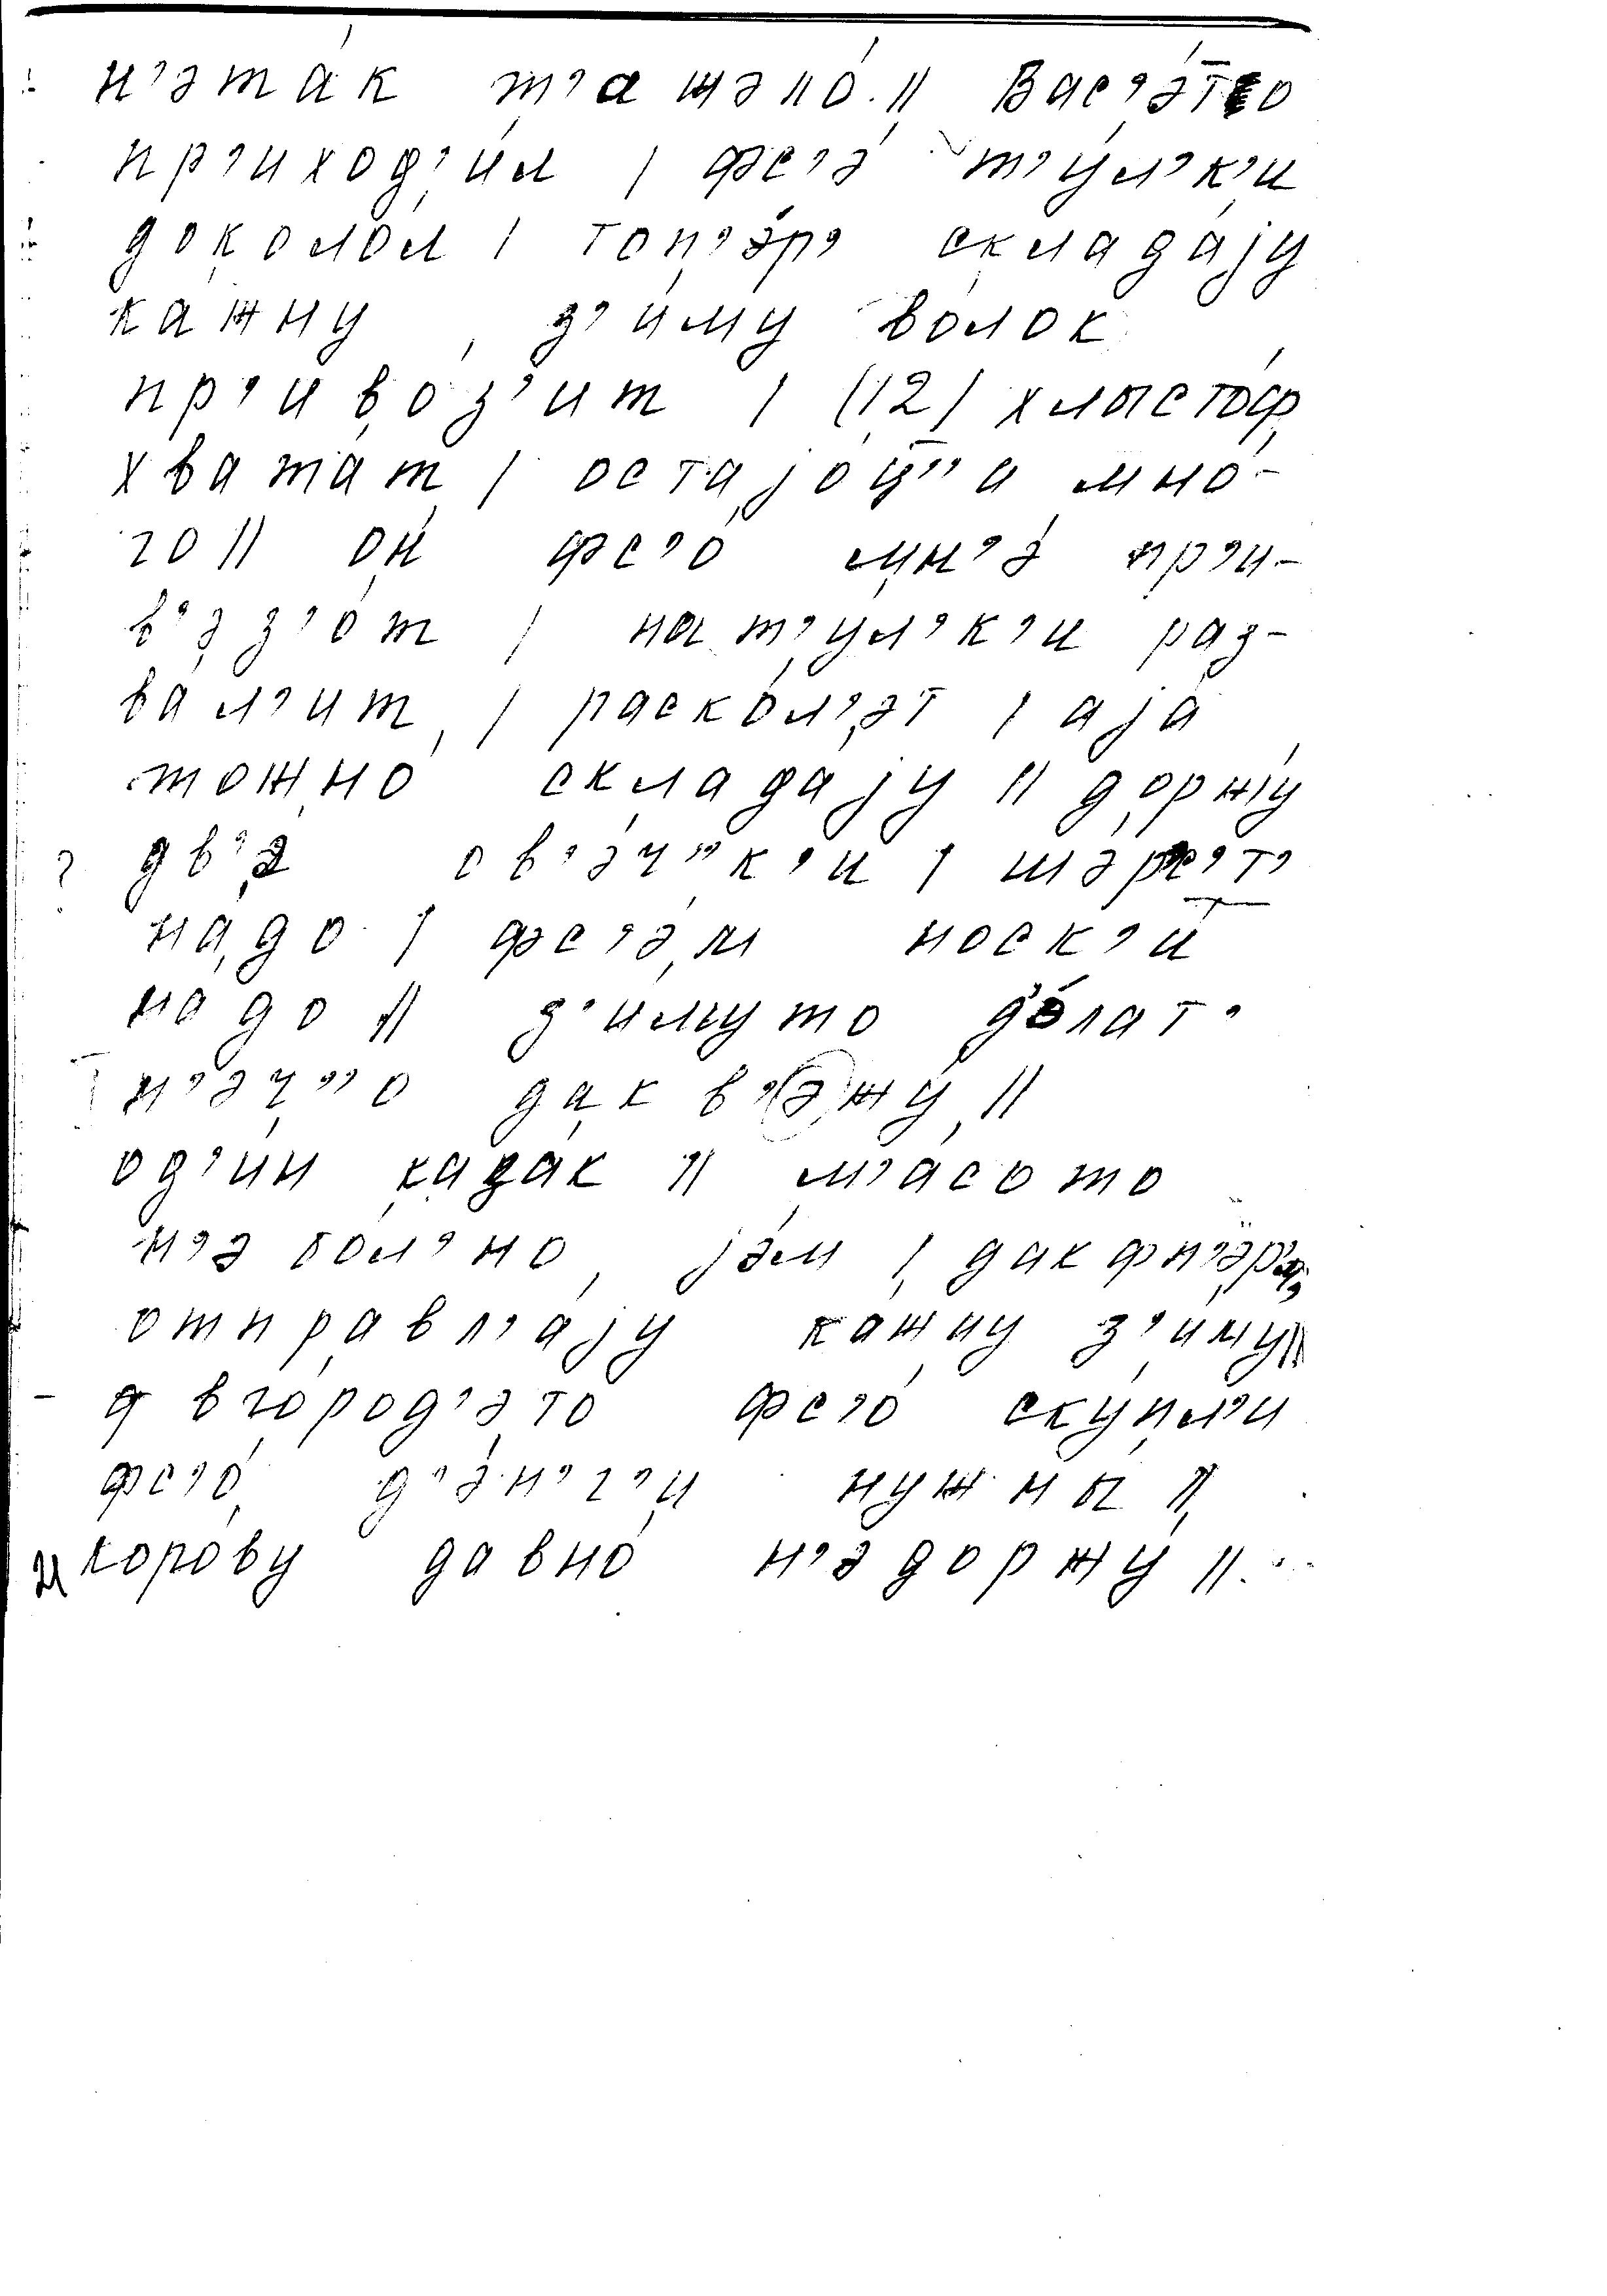 н’эта́к т’ажэло́ || Вас’э́тко
пр’иход’и́л | фс’э́ т’у́л’к’и
доколо́л | топ’э́р’ склада́jу
ка́жну з’и́му во́лок
пр’иво́з’ит | (12) хлысто́ф
хвата́т | остаjо́ц’’а мно́-
го || он фс’о́ мн’э́ пр’и-
в’эз’о́т | на т’у́л’к’и раз-
ва́л’ит | раско́л’эт | аjа́
тожно́ склада́jу || доржу́
дв’э ов’э́ч’’к’и | шэ́рс’т’
на́до | фс’э́м носк’и́
на́до || з’и́муто д’э́лат’
н’эч’’о дак в’эжу́ ||
од’и́н каза́к || м’а́сото
н’э бо́л’но jэ́м | дак фп’эр’о́т
отправл’а́jу ка́жну з’и́му ||
а вго́род’это фс’о́ ску́пл’и
фс’о́ д’э́н’г’и нужны́ ||
и коро́ву давно́ н’э доржу́ ||